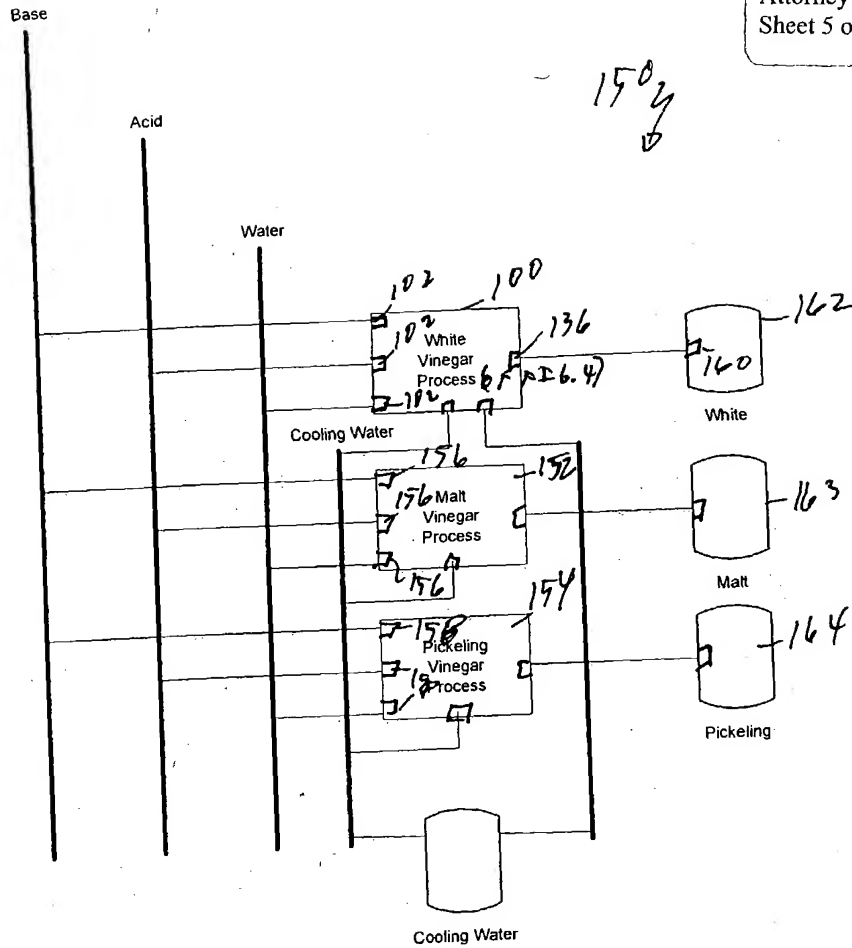 Attorney
Sheet 5 o
Base
150
Acid
Water
102
100
102
White
Vinegar
Process
136
162
160
102
White
Cooling Water
156
152
156
Malt
Vinegar
Process
163
156
Malt
158
154
Pickeling
Vinegar
Process
164
Pickeling
Cooling Water